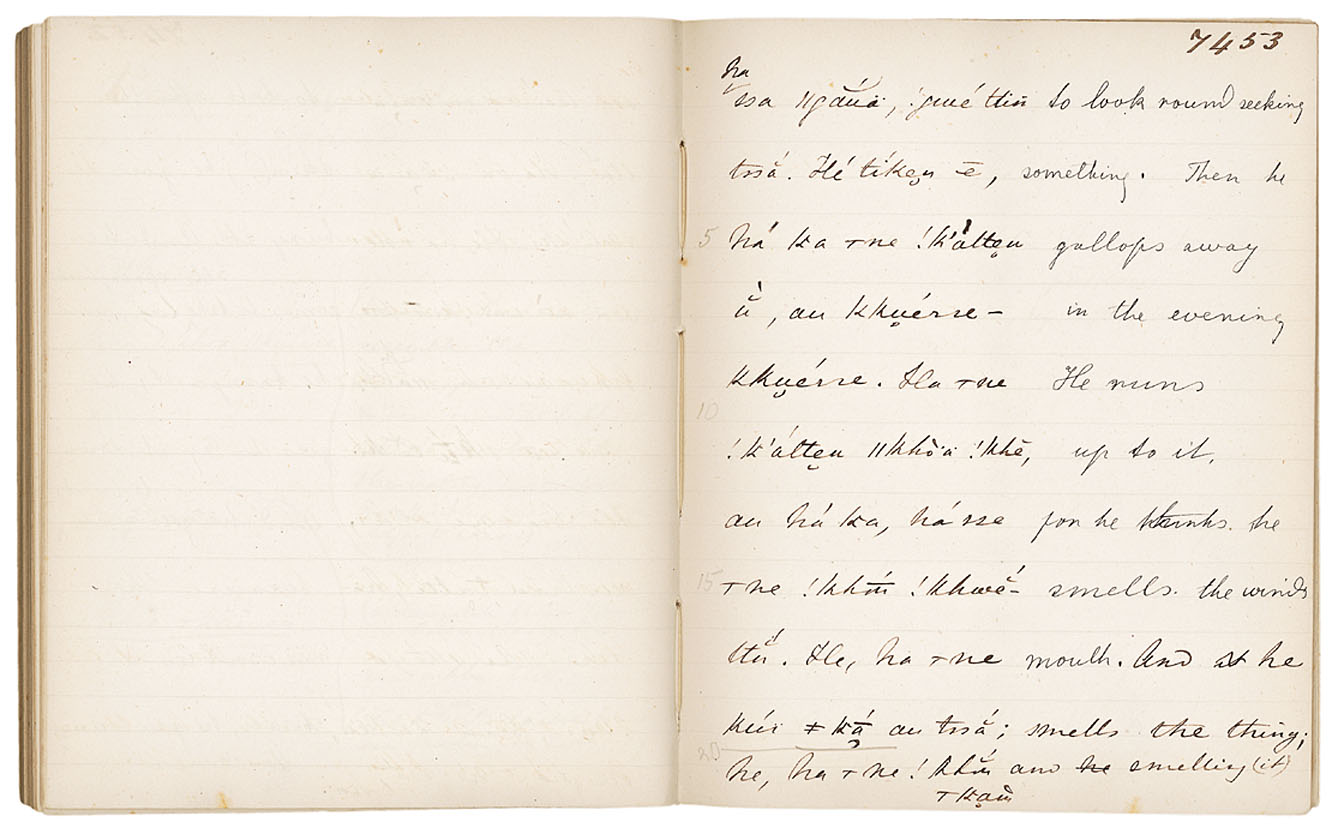 7453
ha
ssa ǁgắuä, ǃgwé ttin̄ to look round seeking
tssắ. Hé tíkẹn ē, something. Then he
5 há ka ⊤ne ǃk'átten̥ gallops away
ŭ̀, au kku̥érre- in the evening
kku̥érre. Ha ⊤ne He runs
10
ǃk'átte̥n ǁkhò̄ä ǃkhē, up to it,
au há ka, há sse for he thinks. he
15 ⊤ne ǃkhḿ̄ ǃkhwĕ́- smells. the winds
ttŭ́. He, ha ⊤ne mouth. And at he
kúï ǂká̱ au tssắ; smells the thing;
20 he, ha ⊤ne ǃkhḿ̆ and he smelling (it)
⊤ka̤m̆̄